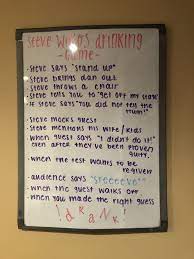 Steve Wilkos drinking
-Game-
-Steve says "stand up"
-Steve brings dan out
-Steve throws a chair
-Steve tells you to "get off my stage"
-If Steve says "You did not tell the
truth!"
-Steve mocks guest
-Steve mentions his wife/kids
-when guest says "I didn't do it!"
even after they've been proven
guilty.
-when the rest wants to be
forgiven
-audience says "Steeeeve"
-when the guest walks off
-when you made the right guess
!drank!